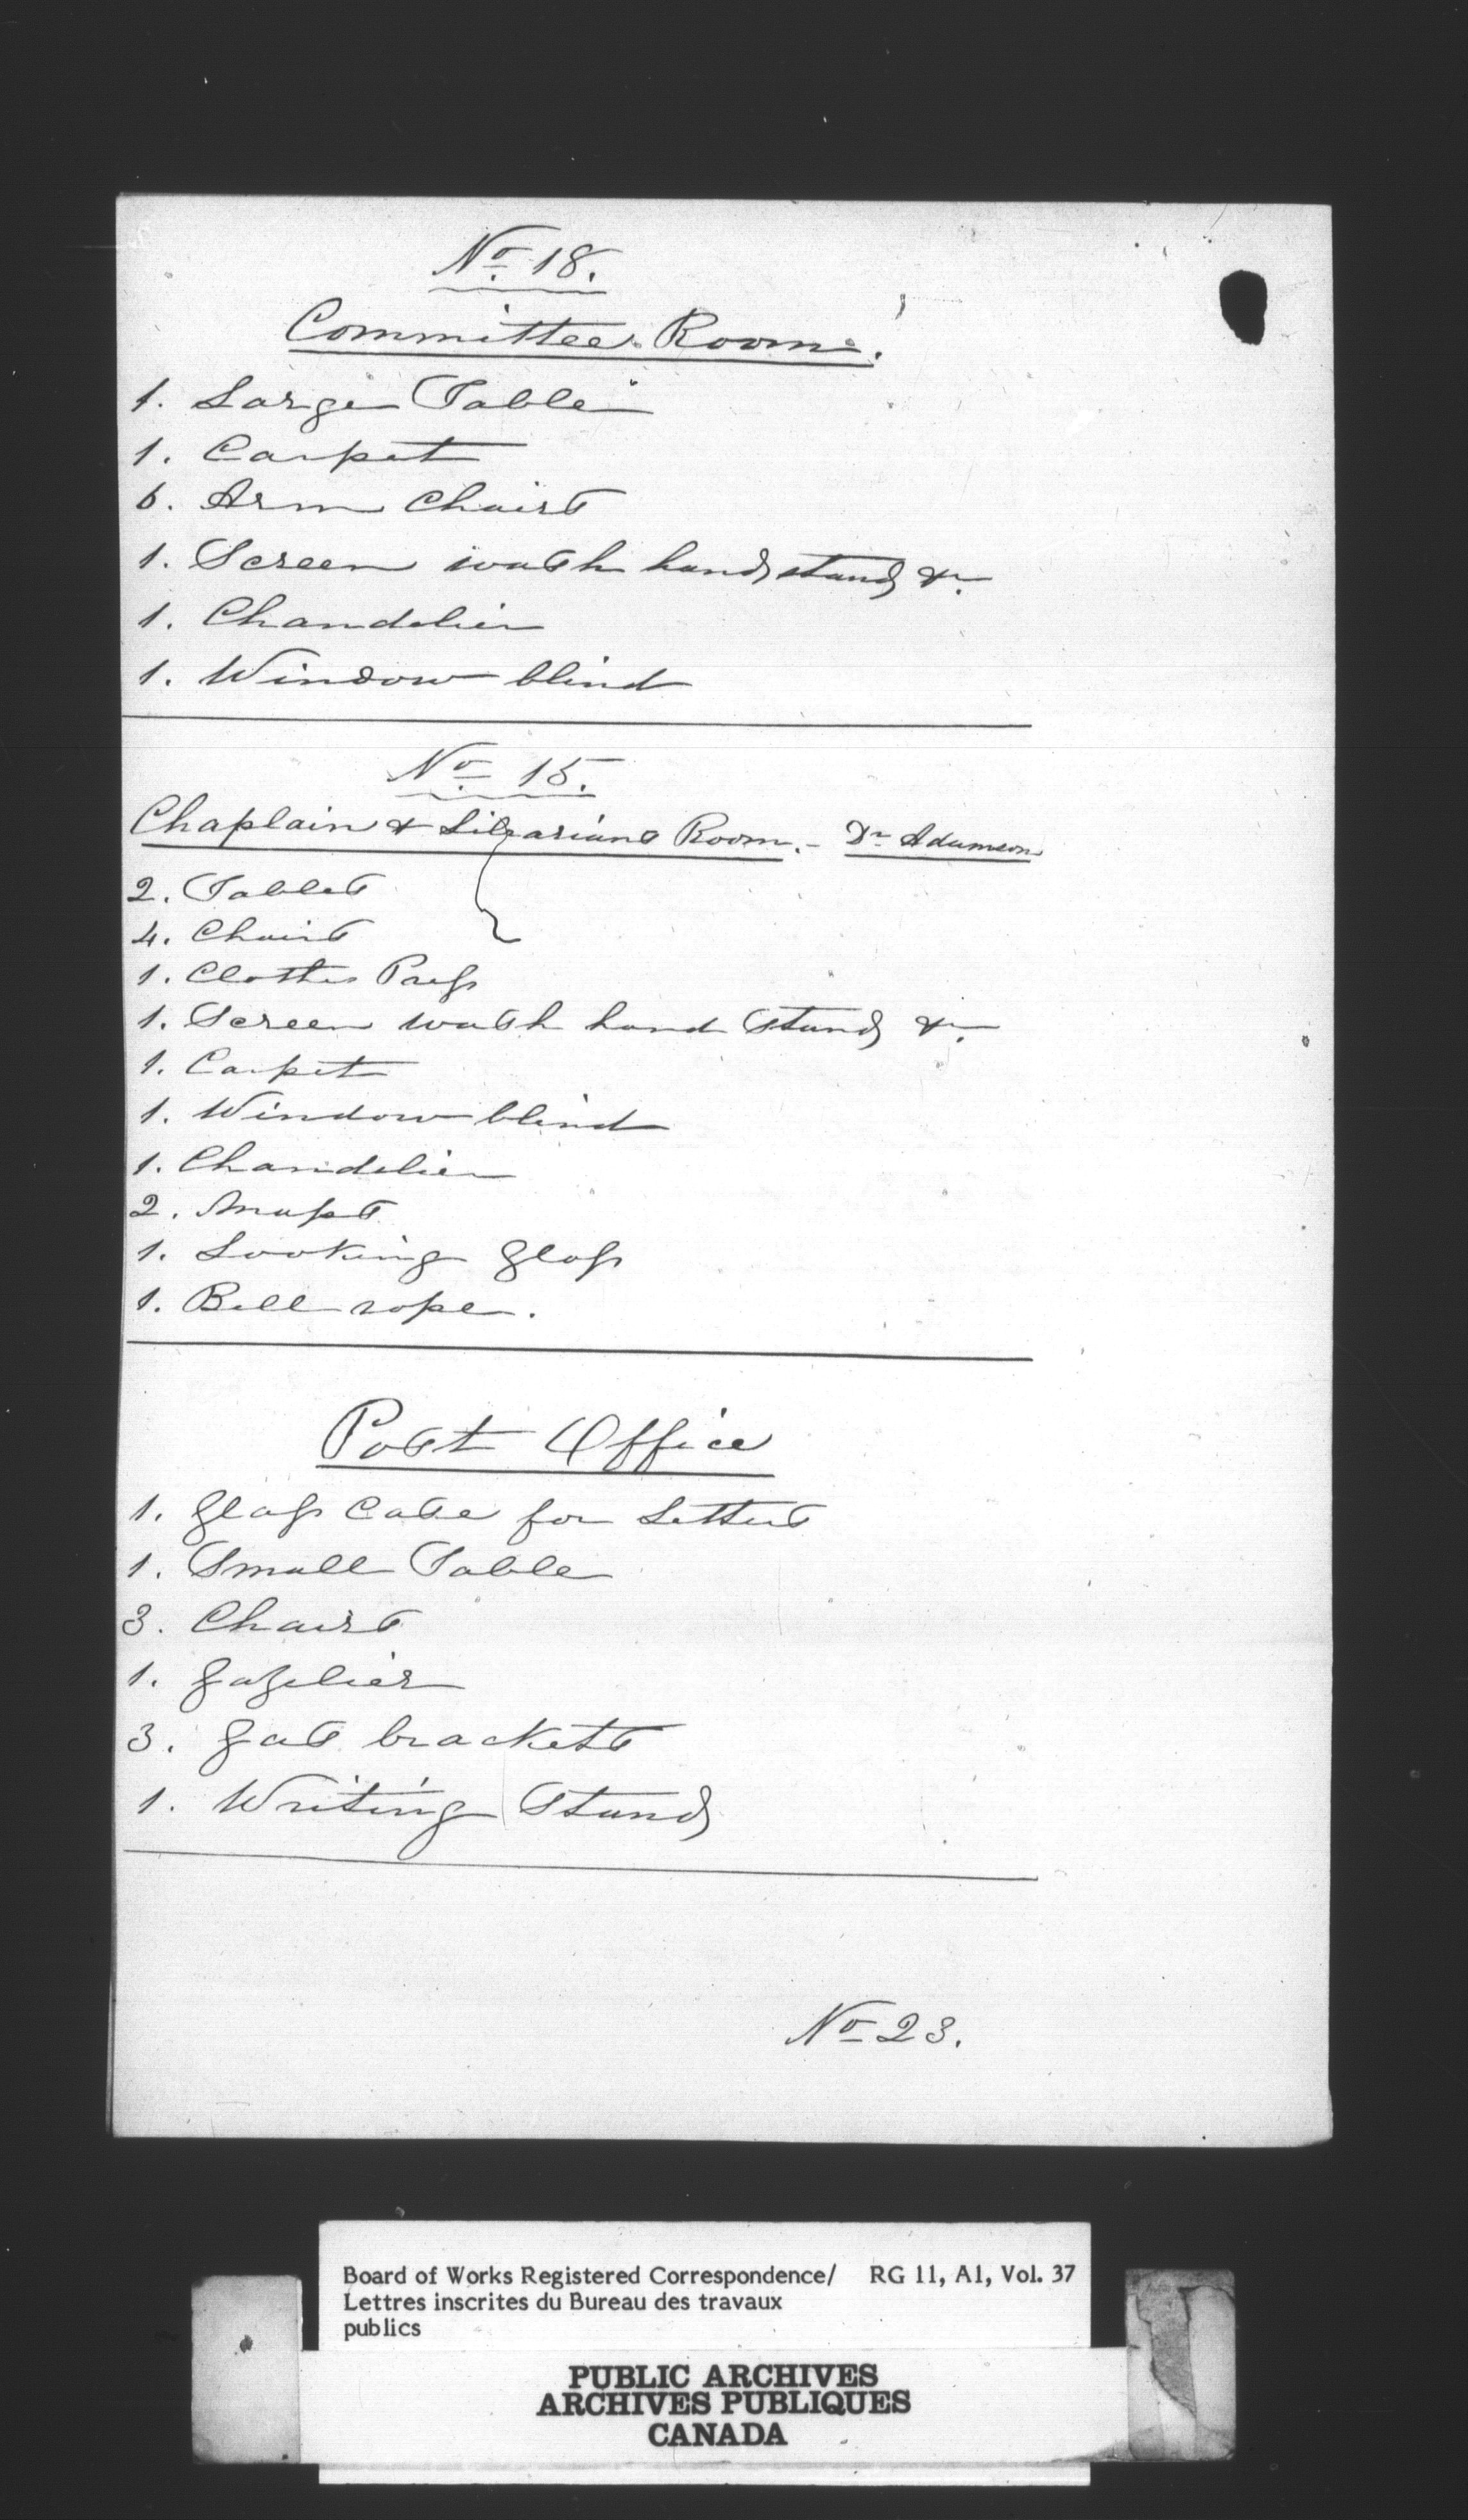 No 18.
Committee Room.
1. Large Table
1. Carpet
6. Arm Chairs
1. Screen wash hand stand &c.
1. Chandelier
1. Window blind
No 15.
Chaplain & Librarians Room. - Dr Adamson
2. Tables
4. Chairs
1. Clothes Press
1. Screen wash hand Stand &c.
1. Carpet
1. Window blind
1. Chandelier
2. Maps
1. Looking glass
1. Bell rope.
Post Office
1. glass Case for Letters
1. Small Table
3. Chairs
1. gaselier
3. gas brackets
1. Writing Stand
No 23.
Board of Works Registered Correspondence/ RG 11, A1, Vol. 37
Lettres inscrites du Bureau des travaux
publics
PUBLIC ARCHIVES
ARCHIVES PUBLIQUES
CANADA